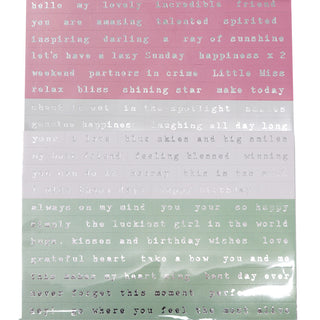 hello my lovely incredible friend
you are amazing talented spirited
inspiring darling a ray of sunshine
let's have a lazy Sunday happiness x 2
weekend partners in crime Little Miss
relax bliss shining star make today
in the spotlight
genuine happines laughing all day long
your blue skies and big smiles
my best friend feeling blessed winning
you can do it hooray this is
happy birthday
always on my mind you your so happy
simply the luckiest girl in the world
hugs, kisses and birthday wishes love
grateful heart take a bow you and me
this makes my heart sing best day ever
never forget this moment
go where you feel the most alive